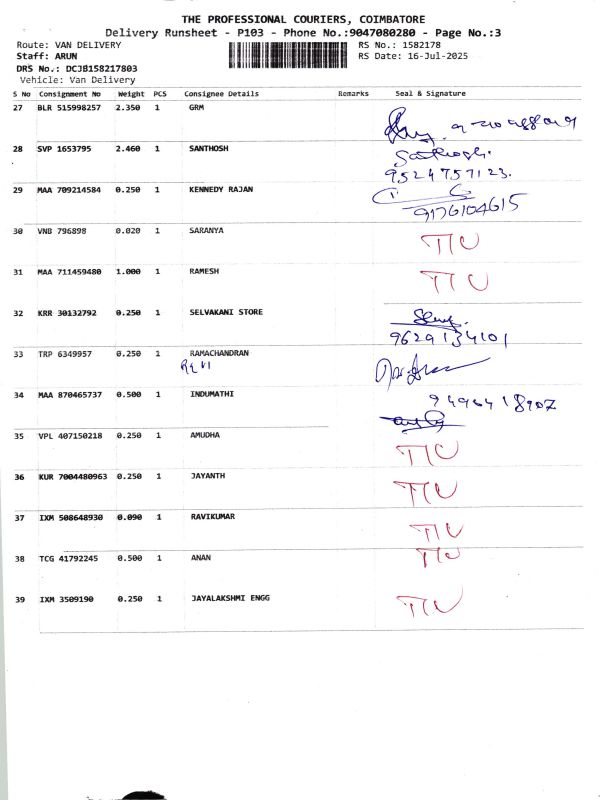 THE PROFESSIONAL COURIERS, COIMBATORE
Delivery Runsheet - P103 - Phone No.:9047080280 - Page No.:3
Route: VAN DELIVERY RS No.: 1582178
Staff: ARUN RS Date: 16-Jul-2025
DRS No.: DCJB158217803
Vehicle: Van Delivery
S No Consignment No Weight PCS Consignee Details Remarks Seal & Signature
27 BLR 515998257 2.350 1 GRM
28 SVP 1653795 2.460 1 SANTHOSH Santhosh.
9524757123.
29 MAA 709214584 0.250 1 KENNEDY RAJAN
9176104615
30 VNB 796898 0.020 1 SARANYA TIU
31 MAA 711459480 1.000 1 RAMESH TIU
32 KRR 30132792 0.250 1 SELVAKANI STORE
9629134101
33 TRP 6349957 0.250 1 RAMACHANDRAN
34 MAA 870465737 0.500 1 INDUMATHI
35 VPL 407150218 0.250 1 AMUDHA TIU
36 KUR 7004480963 0.250 1 JAYANTH TIU
37 IXM 508648930 0.090 1 RAVIKUMAR TIU
38 TCG 41792245 0.500 1 ANAN TIU
39 IXM 3509190 0.250 1 JAYALAKSHMI ENGG TIU